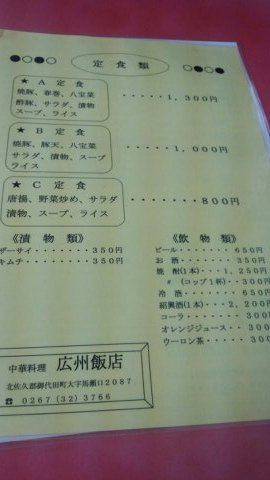 ●○●○ 定食類 ○●○●
★ A 定 食
焼豚、春巻、八宝菜
酢豚、サラダ、漬物
スープ、ライス
・・・・・1,300円
★ B 定 食
焼豚、豚天、八宝菜
サラダ、漬物、スープ
ライス
・・・・・1,000円
★ C 定 食
唐揚、野菜炒め、サラダ
漬物、スープ、ライス
・・・・・800円
《漬 物 類》
ザーサイ・・・・・・350円
キムチ・・・・・・・350円
《飲 物 類》
ビール・・・・・・・650円
お 酒・・・・・・・350円
焼 酎(1本)・・1,250円
〃 (コップ1杯)・・300円
冷 酒・・・・・・・650円
紹興酒(1本)・・2,200円
コーラ・・・・・・・300円
オレンジジュース・・300円
ウーロン茶・・・・・300円
中華料理 広州飯店
北佐久郡御代田町大字馬瀬口2087
☎ 0267 (32) 3766